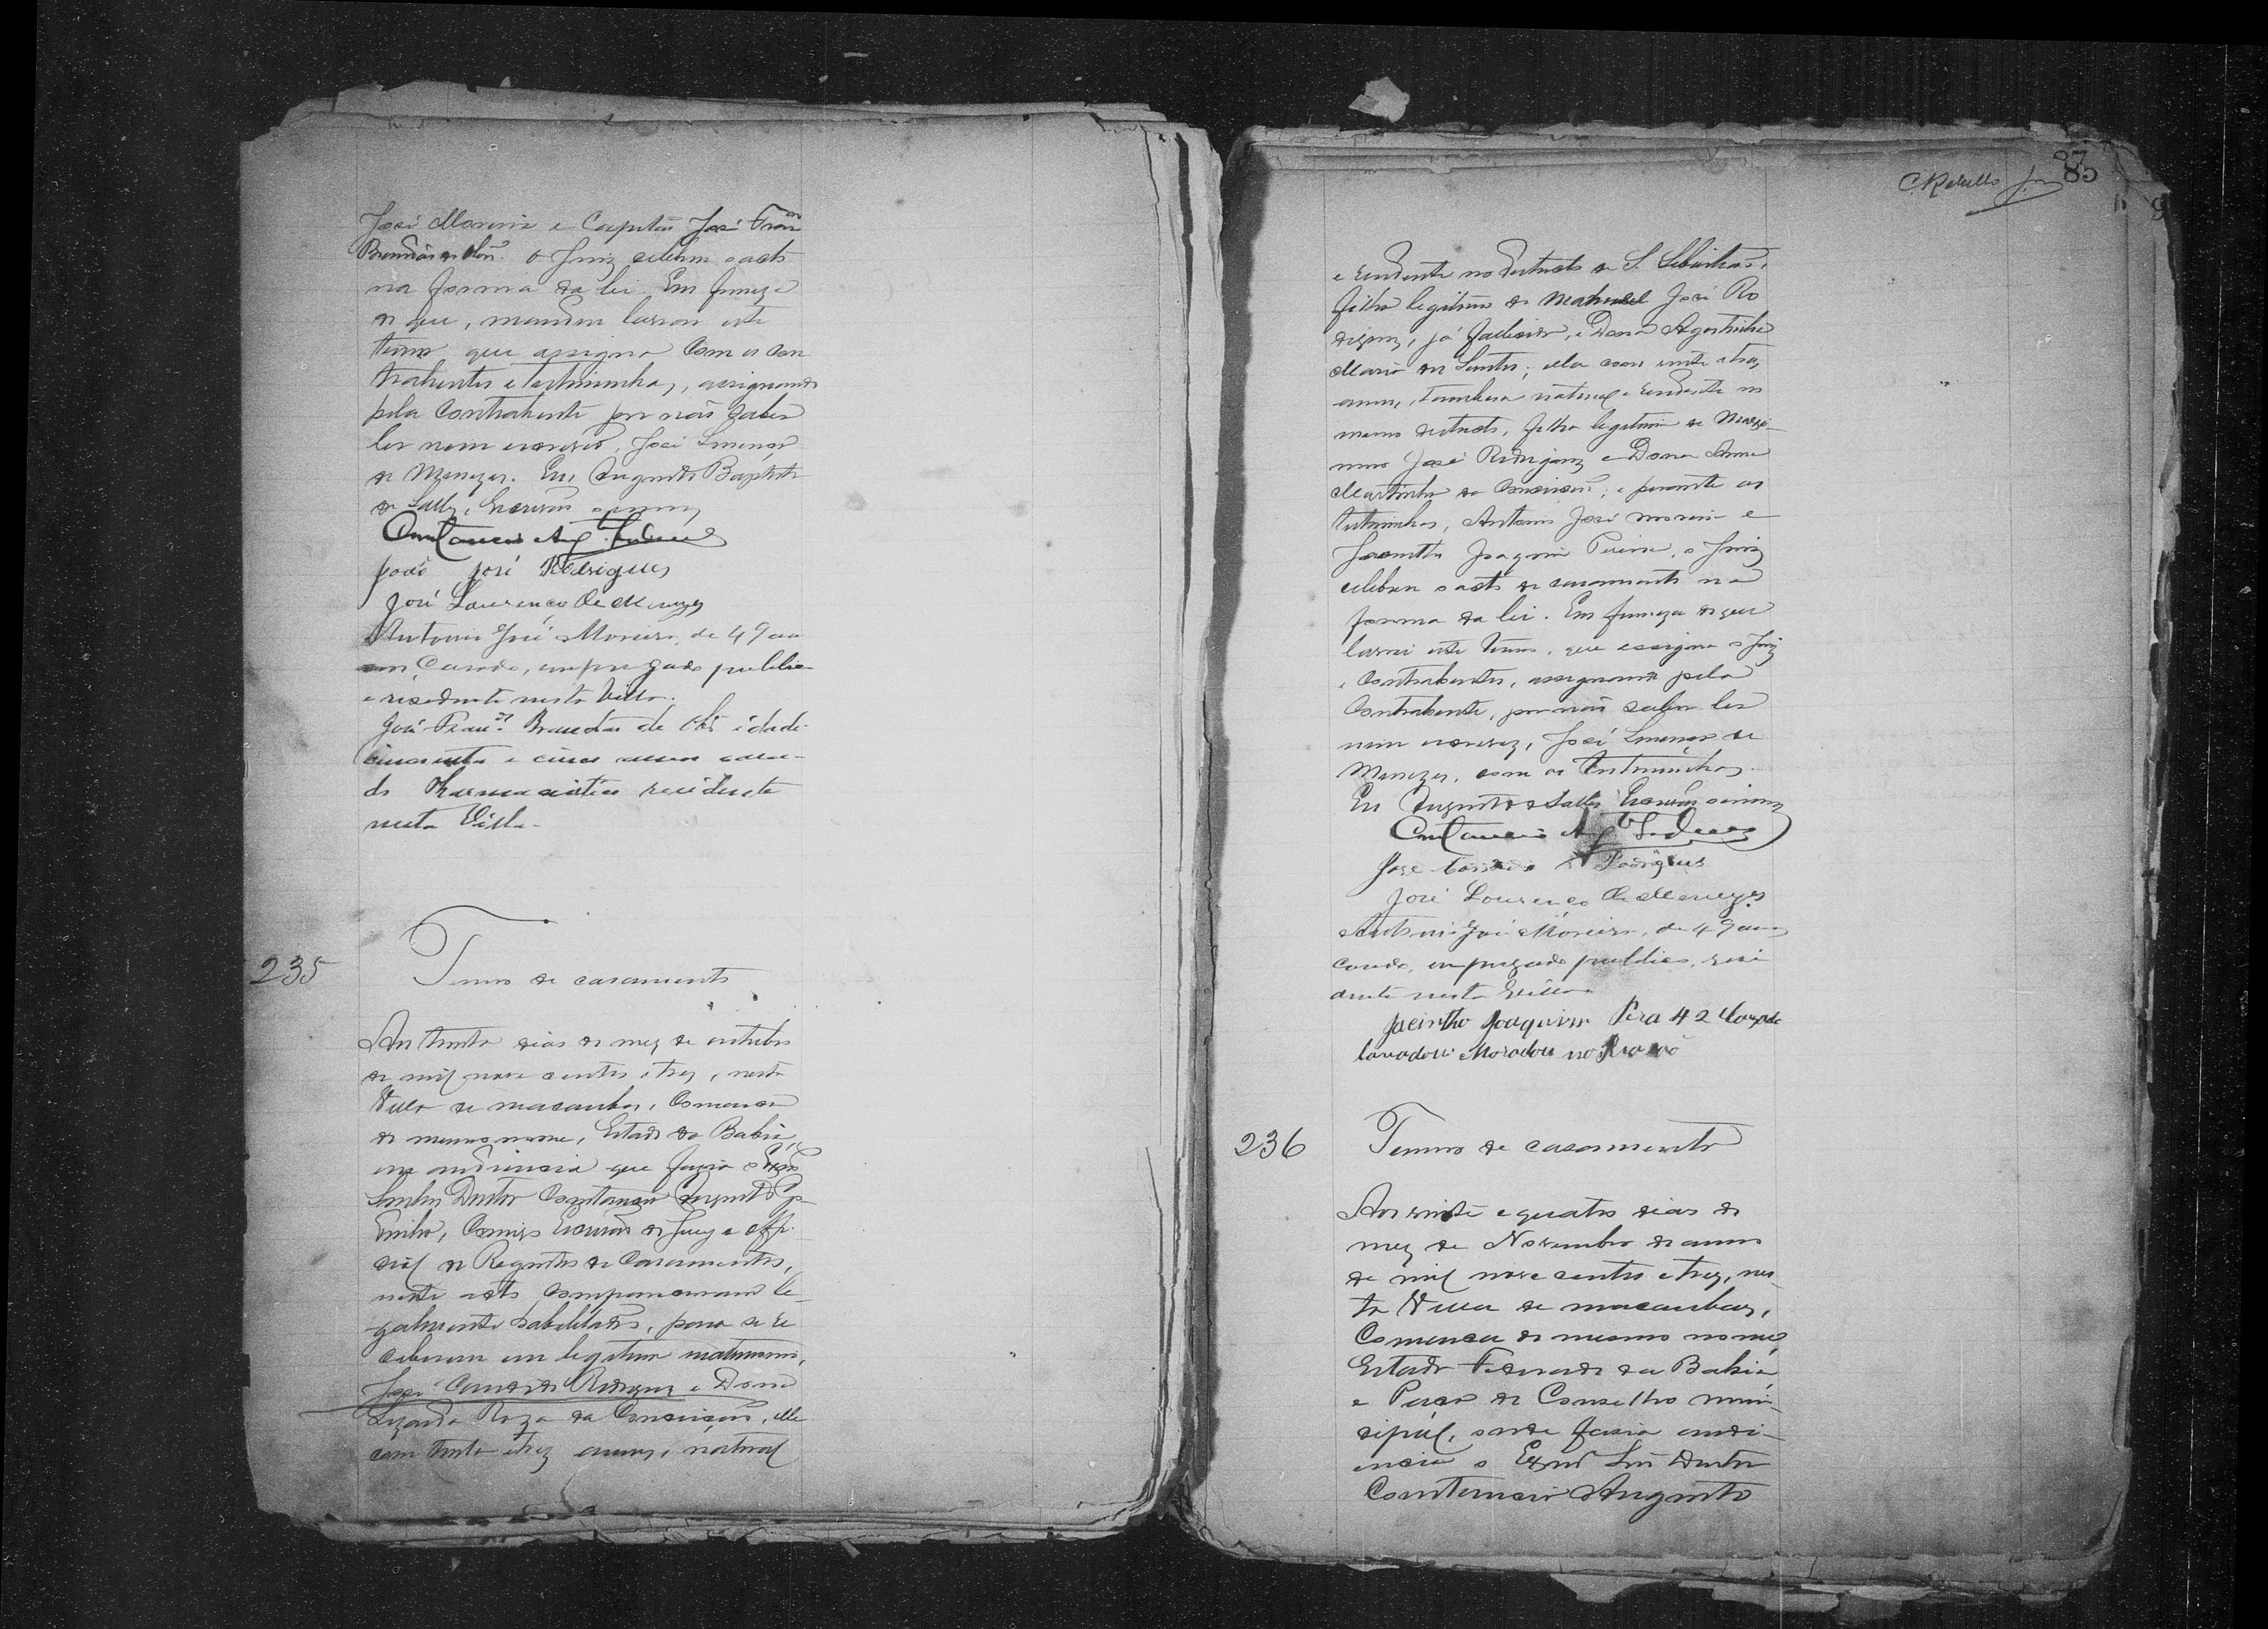 José Moreira e Capitão José Fran
Brandão de
o Juiz celebrou o acto
na forma da lei. Em firmeza
de que, mandou lavrar este
termo que assigna com os con
trahentes e testemunhas, assignando
pela contrahente por não saber
ler nem escrever, José Lourenço
de Menezes. Eu Augusto Baptista
de Salles, Escrivão
José Rodrigues
José Lourenço de Menezes
Antonio José Moreira, de 49 an
nos, casado, empregado publico
e residente nesta Villa.
José Fran.co Brandão de idade
cincoenta e cinco annos casa-
do Pharmaceutico residente
nesta Villa.
235
Termo de casamento
Aos trinta dias do mez de outubro
de mil nove centos e trez, nesta
Villa de Macaubas, Comarca
do mesmo nome, Estado da Bahia,
em audiencia que fazia o
Senhor Doutor Constancio Augusto
comigo Escrivão de Juiz e offi-
cial do Registro de Casamentos,
neste acto compareceram le-
galmente habilitados, para se re
ceberem em legitimo matrimonio,
José Rodrigues e Dona
Roza da Conceição, elle
com trinta e trez annos, natural
C. Rabello
87
85
e residente no districto de S. Sebastião,
filho legitimo de Manoel José Ro
drigues, já fallecido, e Dona Agostinha
Maria dos Santos; ella com vinte e trez
annos, tambem natural e residente no
mesmo districto, filha legitima de
José Rodrigues e Dona Anna
Martinha da Conceição; e perante as
testemunhas, Antonio José Moreira e
Jacintho Joaquim Pereira, o Juiz
celebrou o acto de casamento na
forma da lei. Em firmeza de que
lavrei este termo, que assigna o Juiz
e contrahentes, assignando pela
Contrahente, por não saber ler
nem escrever, José Lourenço de
Menezes, com as testemunhas.
Eu Augusto de Salles Escrivão
José Rodrigues
José Lourenço de Menezes
Antonio José Moreira, de 49 annos
casado, empregado publico, resi
dente nesta Villa
Jacintho Joaquim Pera 42 Cazado
lavador Morador no
236
Termo de casamento
Aos vinte e quatro dias do
mez de Novembro do anno
de mil nove centos e trez, nes-
ta Villa de Macaubas,
Comarca do mesmo nome,
Estado Federado da Bahia
e Paço do Conselho muni-
cipal, onde fazia audi-
encia o Exmo Snr Doutor
Constancio Augusto